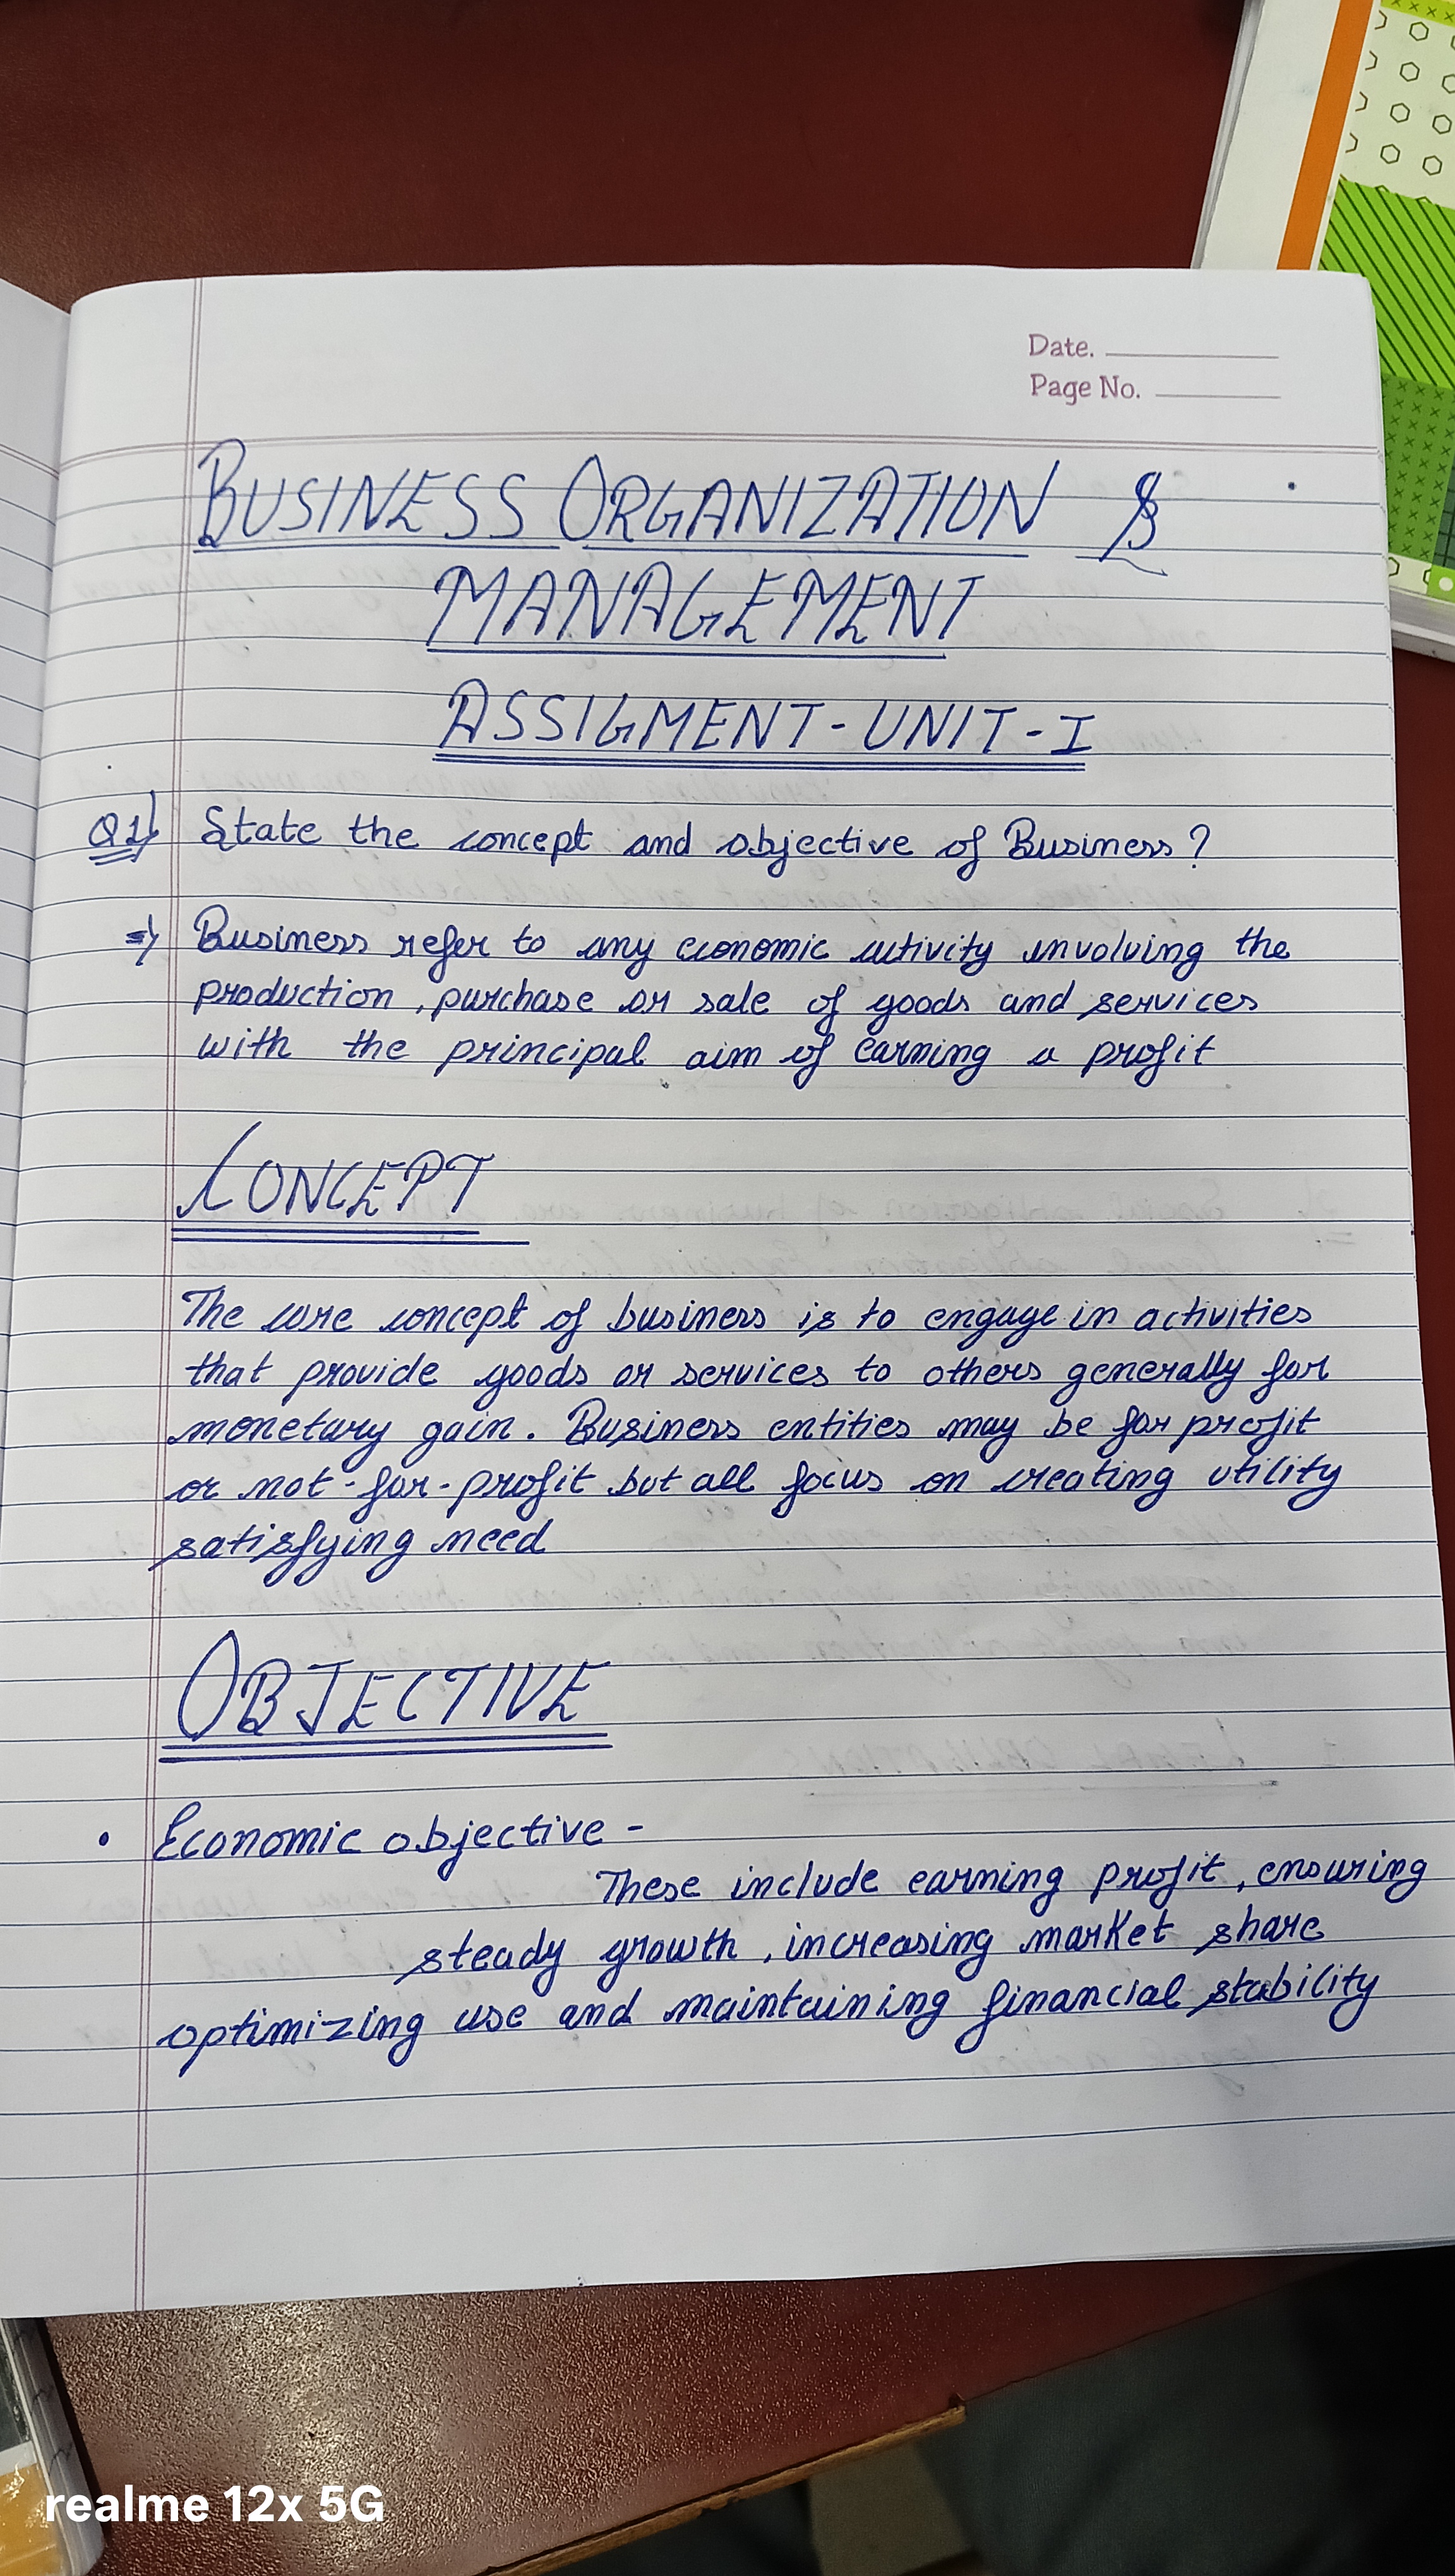 Date.
Page No.
BUSINESS ORGANIZATION &
MANAGEMENT
ASSIGMENT-UNIT-I
Q1) State the concept and objective of Business?
=> Business refer to any economic activity involving the
production, purchase or sale of goods and services
with the principal aim of earning a profit
CONCEPT
The core concept of business is to engage in activities
that provide goods or services to others generally for
monetary gain. Business entities may be for profit
or not-for-profit but all focus on creating utility
satisfying need
OBJECTIVE
• Economic objective -
These include earning profit, ensuring
steady growth, increasing market share
optimizing use and maintaining financial stability
realme 12x 5G